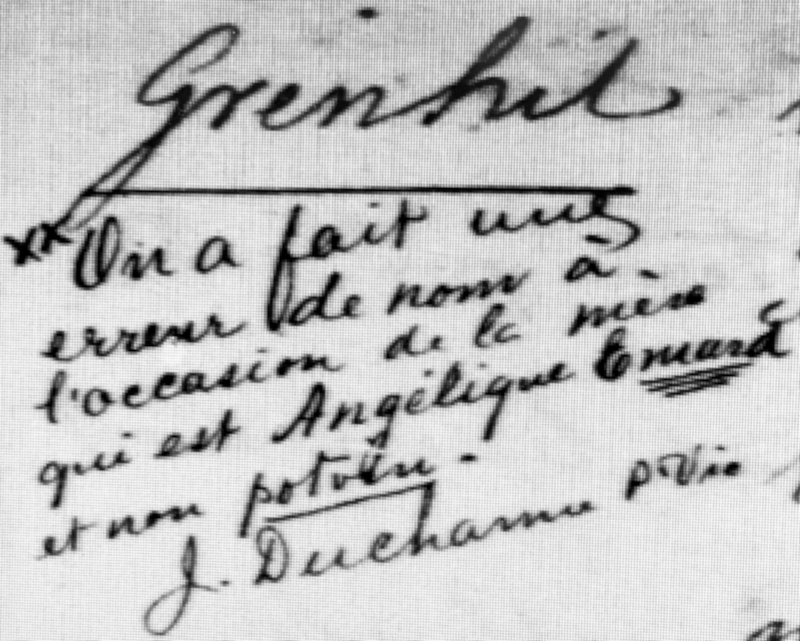 Grenhil
xx On a fait une
erreur de nom à
l'occasion de la mère
qui est Angélique Emard
et non potvin.
J. Ducharme p. Vic